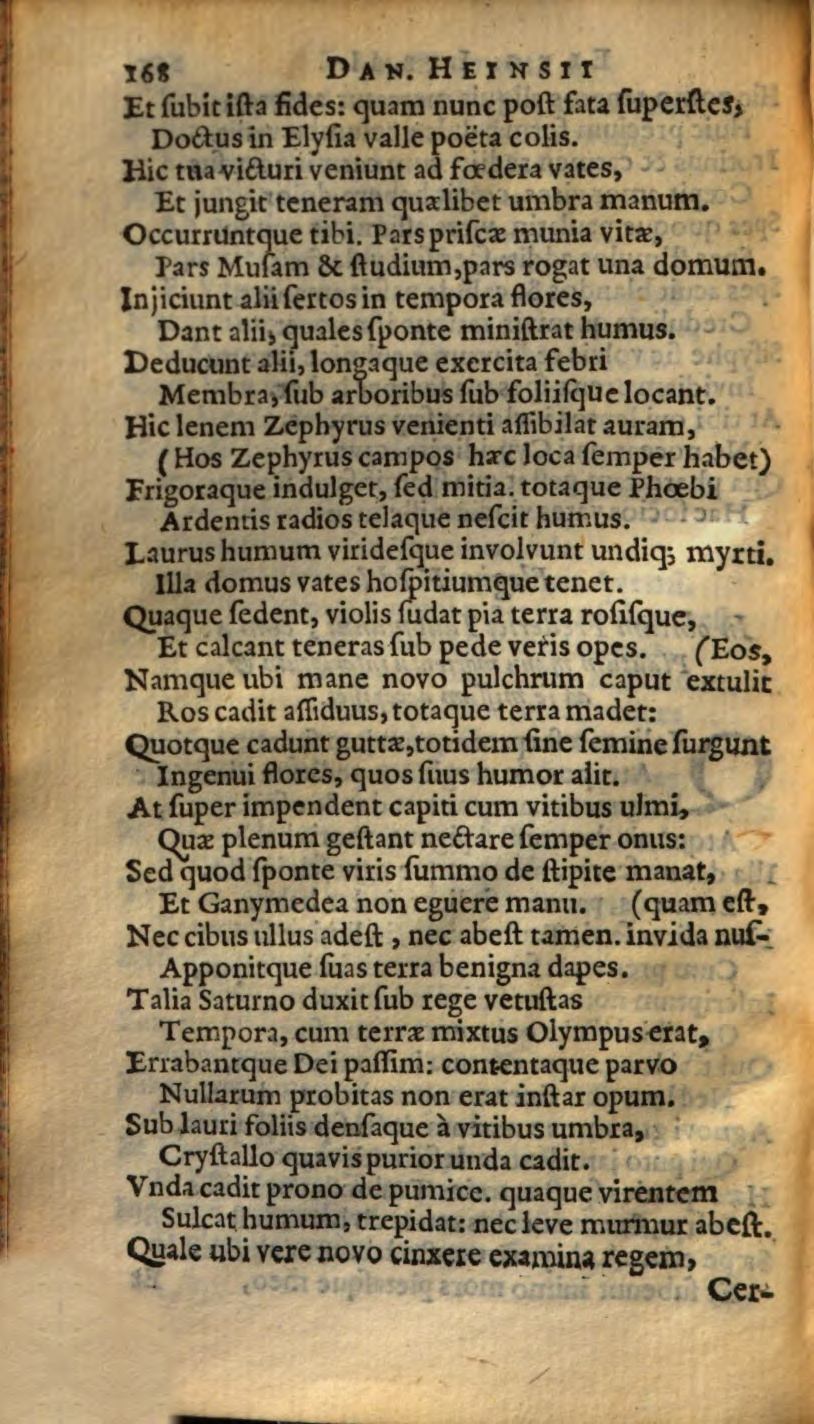 168 DAN. HEINSII
Et ſubit iſta fides: quam nunc poſt fata ſuperſtes,
Doctus in Elyſia valle poëta colis.
Hic tua victuri veniunt ad fœdera vates,
Et jungit teneram quælibet umbra manum.
Occurruntque tibi. Pars priſcæ munia vitæ,
Pars Muſam & ſtudium, pars rogat una domum.
Injiciunt alii ſertos in tempora flores,
Dant alii, quales ſponte miniſtrat humus.
Deducunt alii, longaque exercita febri
Membra, ſub arboribus ſub foliiſque locant.
Hic lenem Zephyrus venienti aſſibilat auram,
(Hos Zephyrus campos hæc loca ſemper habet)
Frigoraque indulget, ſed mitia. totaque Phœbi
Ardentis radios telaque neſcit humus.
Laurus humum virideſque involvunt undiq; myrti.
Illa domus vates hoſpitiumque tenet.
Quaque ſedent, violis ſudat pia terra roſiſque,
Et calcant teneras ſub pede veris opes. (Eos,
Namque ubi mane novo pulchrum caput extulit
Ros cadit aſſiduus, totaque terra madet:
Quotque cadunt guttæ, totidem ſine ſemine ſurgunt
Ingenui flores, quos ſuus humor alit.
At ſuper impendent capiti cum vitibus ulmi,
Quæ plenum geſtant nectare ſemper onus:
Sed quod ſponte viris ſummo de ſtipite manat,
Et Ganymedea non eguere manu. (quam eſt,
Nec cibus ullus adeſt, nec abeſt tamen. invida nuſ-
Apponitque ſuas terra benigna dapes.
Talia Saturno duxit ſub rege vetuſtas
Tempora, cum terræ mixtus Olympus erat,
Errabantque Dei paſſim: contentaque parvo
Nullarum probitas non erat inſtar opum.
Sub lauri foliis denſaque à vitibus umbra,
Cryſtallo quavis purior unda cadit.
Vnda cadit prono de pumice. quaque virentem
Sulcat humum, trepidat: nec leve murmur abeſt.
Quale ubi vere novo cinxere examina regem,
Cer-